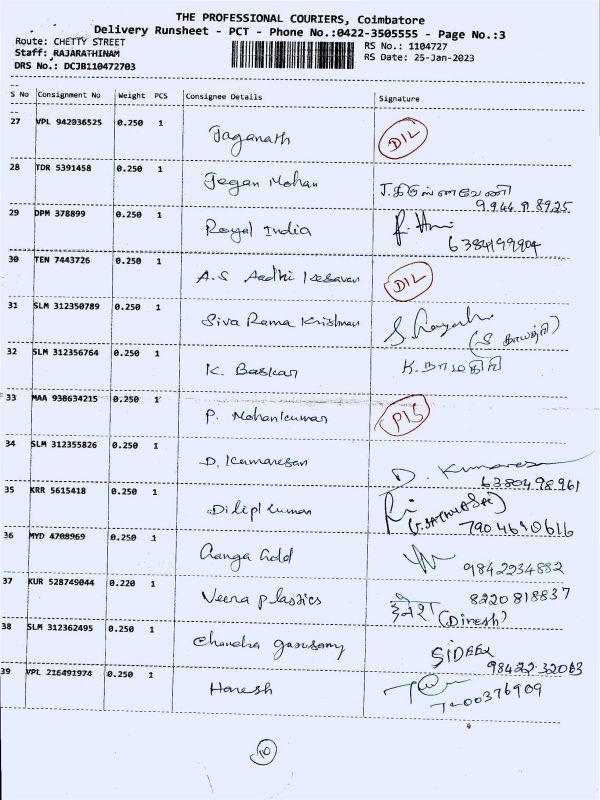 THE PROFESSIONAL COURIERS, Coimbatore
Delivery Runsheet - PCT - Phone No.:0422-3505555 - Page No.:3
Route: CHETTY STREET RS No.: 1104727
Staff: RAJARATHINAM RS Date: 25-Jan-2023
DRS No.: DCJB110472703
S No Consignment No Weight PCS Consignee Details Signature
27 VPL 942036525 0.250 1 Jaganath DIL
28 TDR 5391458 0.250 1 Jegan Mohan
29 DPM 378899 0.250 1 Royal India
6384199904
30 TEN 7443726 0.250 1 A.S Aadhi Kesavan DIL
31 SLM 312350789 0.250 1 Siva Rama Krishnan
32 SLM 312356764 0.250 1 K. Baskar
33 MAA 938634215 0.250 1 P. Mohankumar
34 SLM 312355826 0.250 1 D. Kumaresan D. Kumaresan
6380498961
35 KRR 5615418 0.250 1 Dilipl Kuman
36 MYD 4708969 0.250 1 Gold
9842234882
37 KUR 528749044 0.220 1 Veera plastics 8220818837
(Dinesh)
38 SLM 312362495 0.250 1 Chandra
98422 32063
39 VPL 216491974 0.250 1 Haresh
7200376909
10